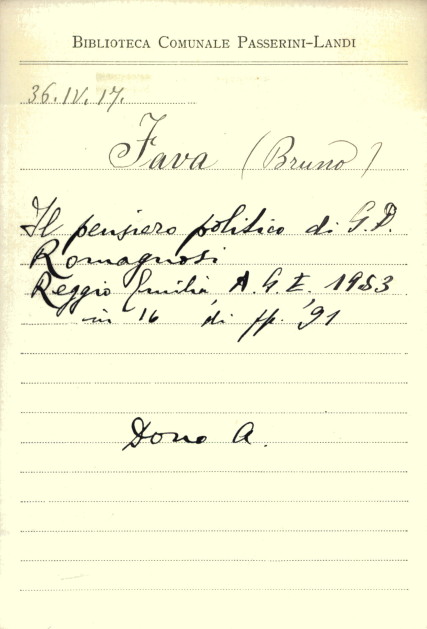 BIBLIOTECA COMUNALE PASSERINI-LANDI
36.IV.17.
Fava (Bruno)
Il pensiero politico di G.D.
Romagnosi
Reggio Emilia, A.G.E., 1953
in 16 di pp. 91
Dono A.